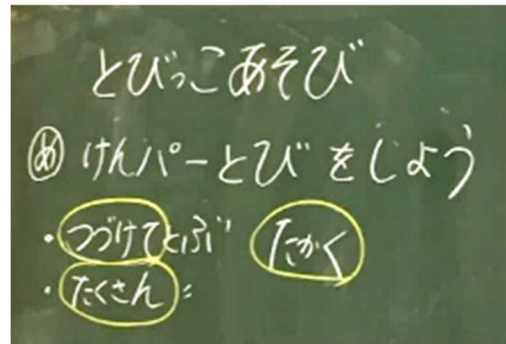 とびっこあそび
め けんパーとびをしよう
・つづけてとぶ たかく
・たくさん 〃